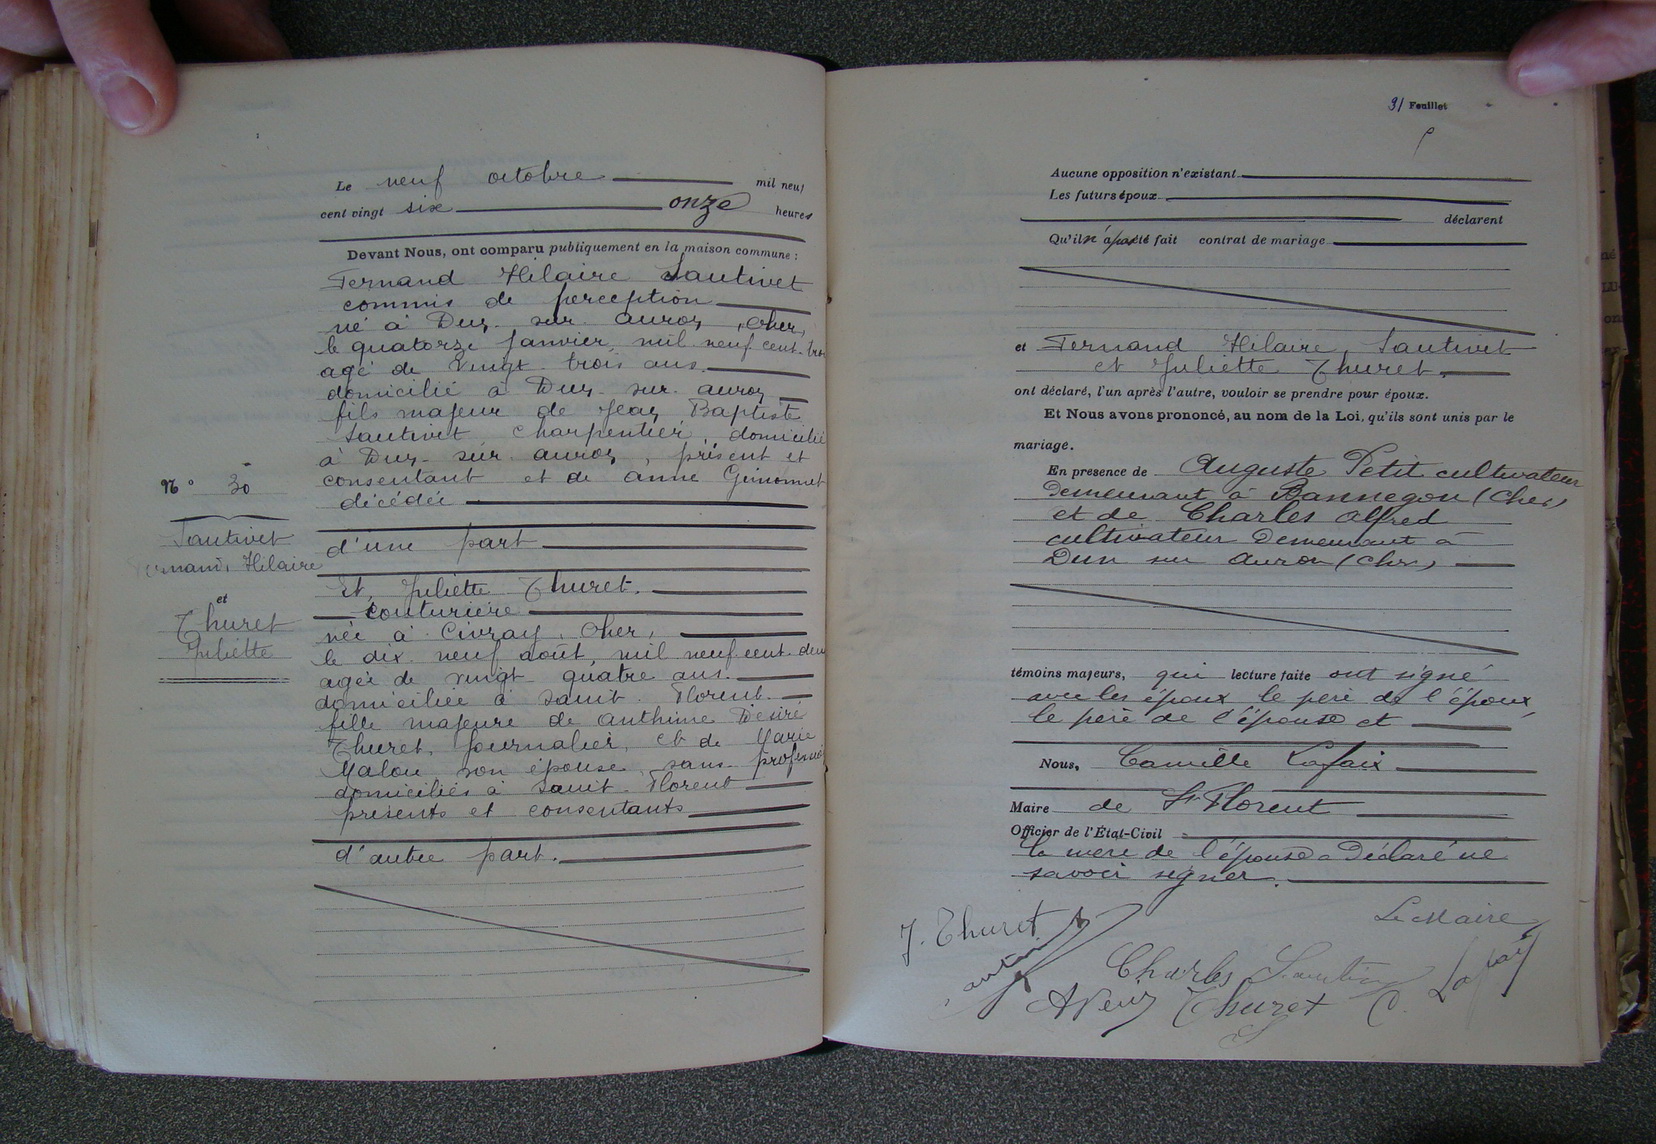 Le neuf octobre mil neuf
cent vingt six onze heures
Devant Nous, ont comparu publiquement en la maison commune :
Fernand Hilaire Sautivet
commis de perception
né à Dun sur auron, Cher,
le quatorze Janvier, mil neuf cent trois
agé de vingt trois ans.
domicilié à Dun sur auron
fils majeur de Jean Baptiste
Sautivet, charpentier, domicilié
à Dun sur auron, présent et
consentant et de anne
décédée
d'une part
Et, Juliette Thuret.
couturière
née à Civray, Cher,
le dix neuf août, mil neuf cent deux
agée de vingt quatre ans.
domiciliée à Saint Florent.
fille majeure de Anthime Désiré
Thuret, journalier, et de Marie
Malou son épouse, sans profession
domiciliés à Saint Florent
présents et consentants
d'autre part.
N° 30
Sautivet
Fernand, Hilaire
et
Thuret
Juliette
31 Feuillet
Aucune opposition n'existant
Les futurs époux
déclarent
Qu'il n'a pas été fait contrat de mariage
et Fernand Hilaire Sautivet
et Juliette Thuret.
ont déclaré, l'un après l'autre, vouloir se prendre pour époux.
Et Nous avons prononcé, au nom de la Loi, qu'ils sont unis par le
mariage.
En présence de Auguste Petit cultivateur
Demeurant à Bannegon (Cher)
et de Charles Alfred
cultivateur Demeurant à
Dun sur Auron (Cher)
témoins majeurs, qui lecture faite ont signé
avec les époux le père de l'époux,
le père de l'épouse et
Nous, Camille Lafaix
Maire de St Florent
Officier de l'État-Civil
La mère de l'épouse a Déclaré ne
savoir signer.
J. Thuret
Le Maire
Charles
Thuret
C. Lafaix